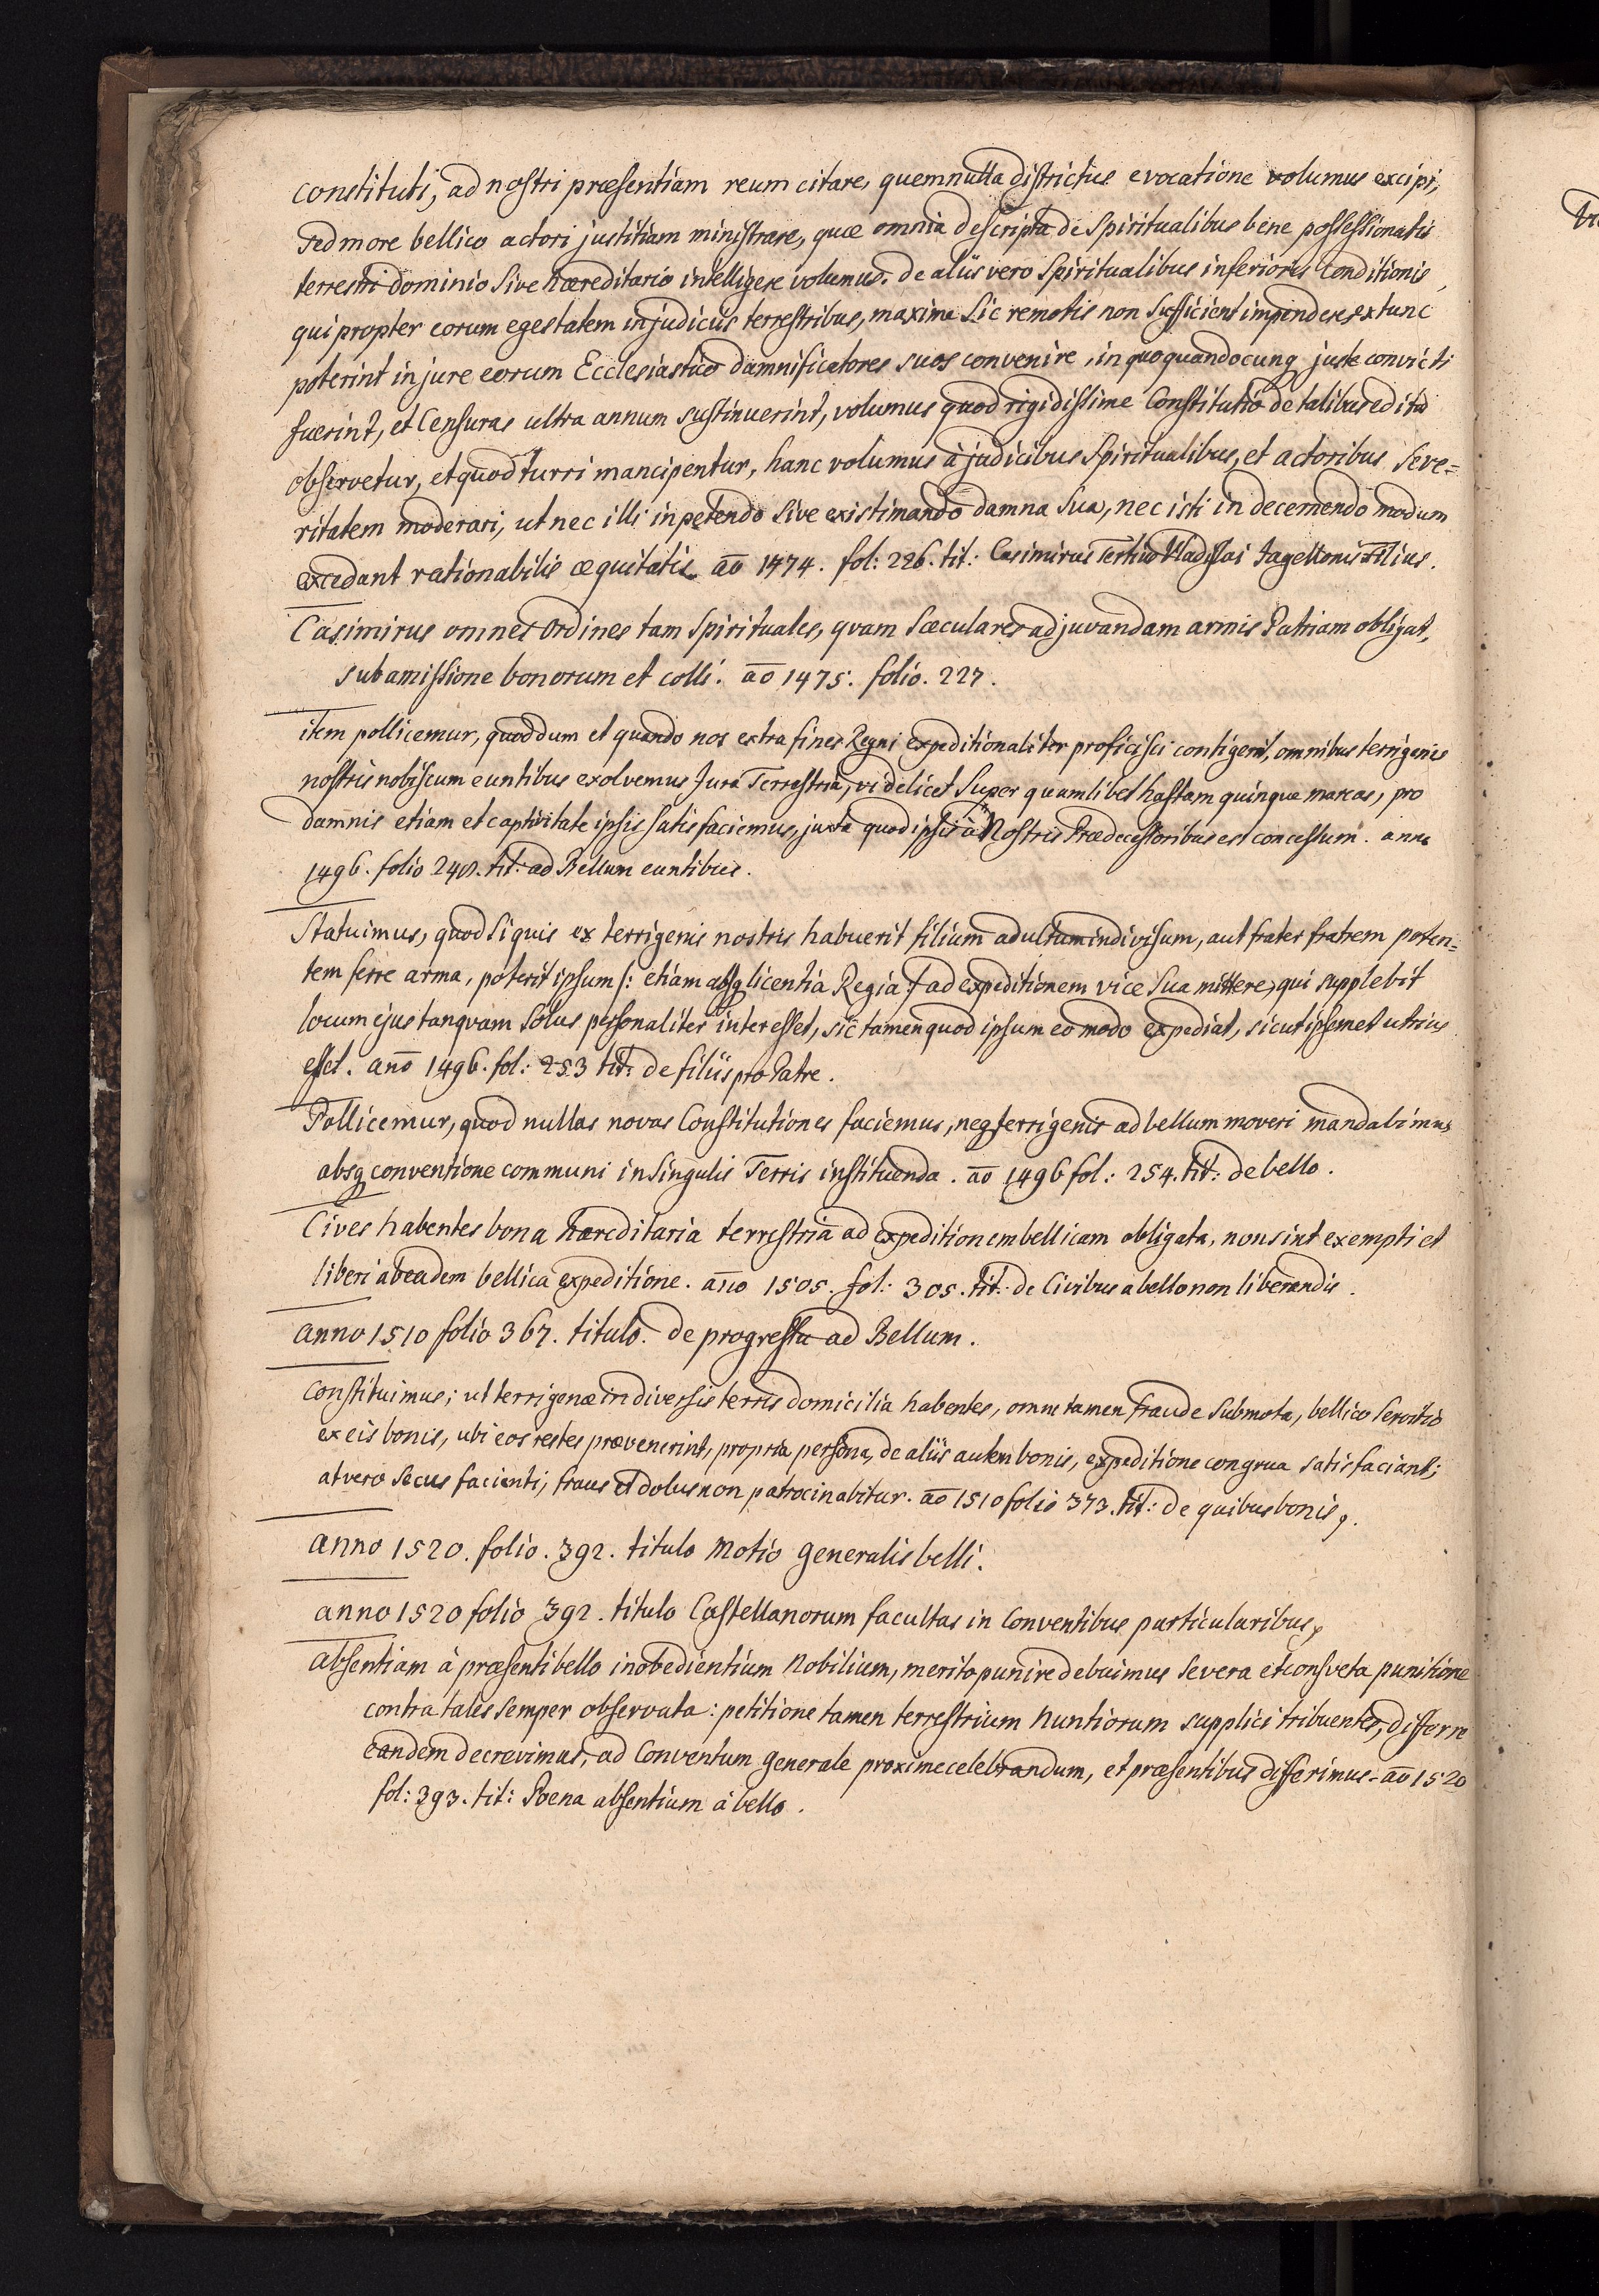 constituti, ad nostri præsentiam reum citare, quem nulla districtus evocatione volumus excipi,
sed more bellico actori justitiam ministrare, quæ omnia descripta de Spiritualibus bene possessionatis
terrestri dominio Sive hæreditario intelligere volumus. de aliis vero Spiritualibus inferioris Conditionis,
qui propter eorum egestatem in judiciis terrestribus, maxime Sic remotis non Sufficient impendere extunc
poterint in jure eorum Ecclesiastico damnificatores suos convenire, in quo quandocunq juste convicti
fuerint, et Censuras ultra annum sustinuerint, volumus quod rigidissime Constitutio de talibus edita
observetur, et quod turri mancipentur, hanc volumus à judicibus Spiritualibus, et actoribus Seve=
ritatem moderari, ut nec illi in petendo Sive existimando damna Sua, nec isti in decernendo modum
excedant rationabilis æquitatis. aō 1474. fol: 226. tit: Casimirus Tertius Vladislai Jagellonis Filius.
Casimirus omnes Ordines tam Spirituales, qvam Sæculares adjuvandam armis Patriam obligat,
sub amissione bonorum et colli. aō 1475. folio. 227.
item pollicemur, quod dum et quando nos extra fines Regni expeditionaliter proficisci contigerit, omnibus terrigenis
nostris nobiscum euntibus exolvemus Jura Terrestria, videlicet Super quamlibet hastam quinque marcas, pro
damnis etiam et captivitate ipsis satisfaciemus, juxta quod ipsis à Nostris Prædecessoribus est concessum. anno
1496. folio 248. tit: ad Bellum euntibus.
Statuimus, quod Si quis ex terrigenis nostris habuerit filium adultum indivisum, aut frater fratrem poten=
tem ferre arma, poterit ipsum /: etiam absq licentia Regia :/ ad expeditionem vice Sua mittere, qui supplebit
locum ejus tanqvam Solus personaliter interesset, sic tamen quod ipsum eo modo expediat, sicut ipsemet iturus
esset. anō 1496. fol: 253 tit: de filiis pro Patre.
Pollicemur, quod nullas novas Constitutiones faciemus, neq terrigenis ad bellum moveri mandabimus
absq conventione communi in Singulis Terris instituenda. aō 1496 fol: 254. tit: de bello.
Cives habentes bona hæreditaria terrestria ad expeditionem bellicam obligata, non sint exempti et
liberi ab eadem bellica expeditione. año 1505. fol: 305. tit: de Civibus a bello non liberandis.
anno 1510 folio 367. titulo. de progressu ad Bellum.
Constituimus; ut terrigenæ in diversis terris domicilia habentes, omni tamen fraude Submota, bellico Servitio
ex eis bonis, ubi eos restes prævenerint, propria persona, de aliis autem bonis, expeditione congrua satisfaciant;
at vero Secus facienti, fraus et dolus non patrocinabitur. aō 1510 folio 373. tit: de quibus bonis,.
anno 1520. folio. 392. titulo Motio generalis belli.
anno 1520 folio 392. titulo Castellanorum facultas in Conventibus particularibus,
absentiam à præsenti bello inobedientium Nobilium, merito punire debuimus Severa et consveta punitione
contra tales Semper observata: petitione tamen terrestrium Nuntiorum supplici tribuentes, differre
eandem decrevimus, ad Conventum generale proxime celebrandum, et præsentibus differimus. aō 1520
fol: 393. tit: Poena absentium à bello.